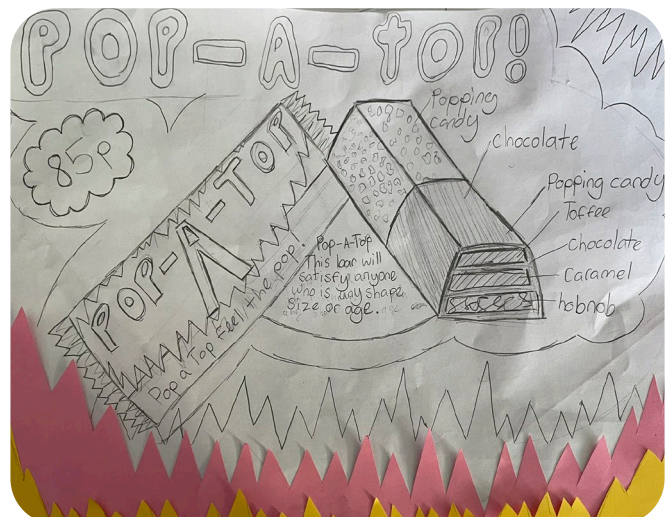 POP-A-TOP!
85p
POP-A-TOP
Pop a Top Feel the pop.
Pop-A-Top
This bar will
satisfy anyone
who is any shape,
size or age.
Popping
candy
Chocolate
Popping candy
Toffee
Chocolate
Caramel
hobnob